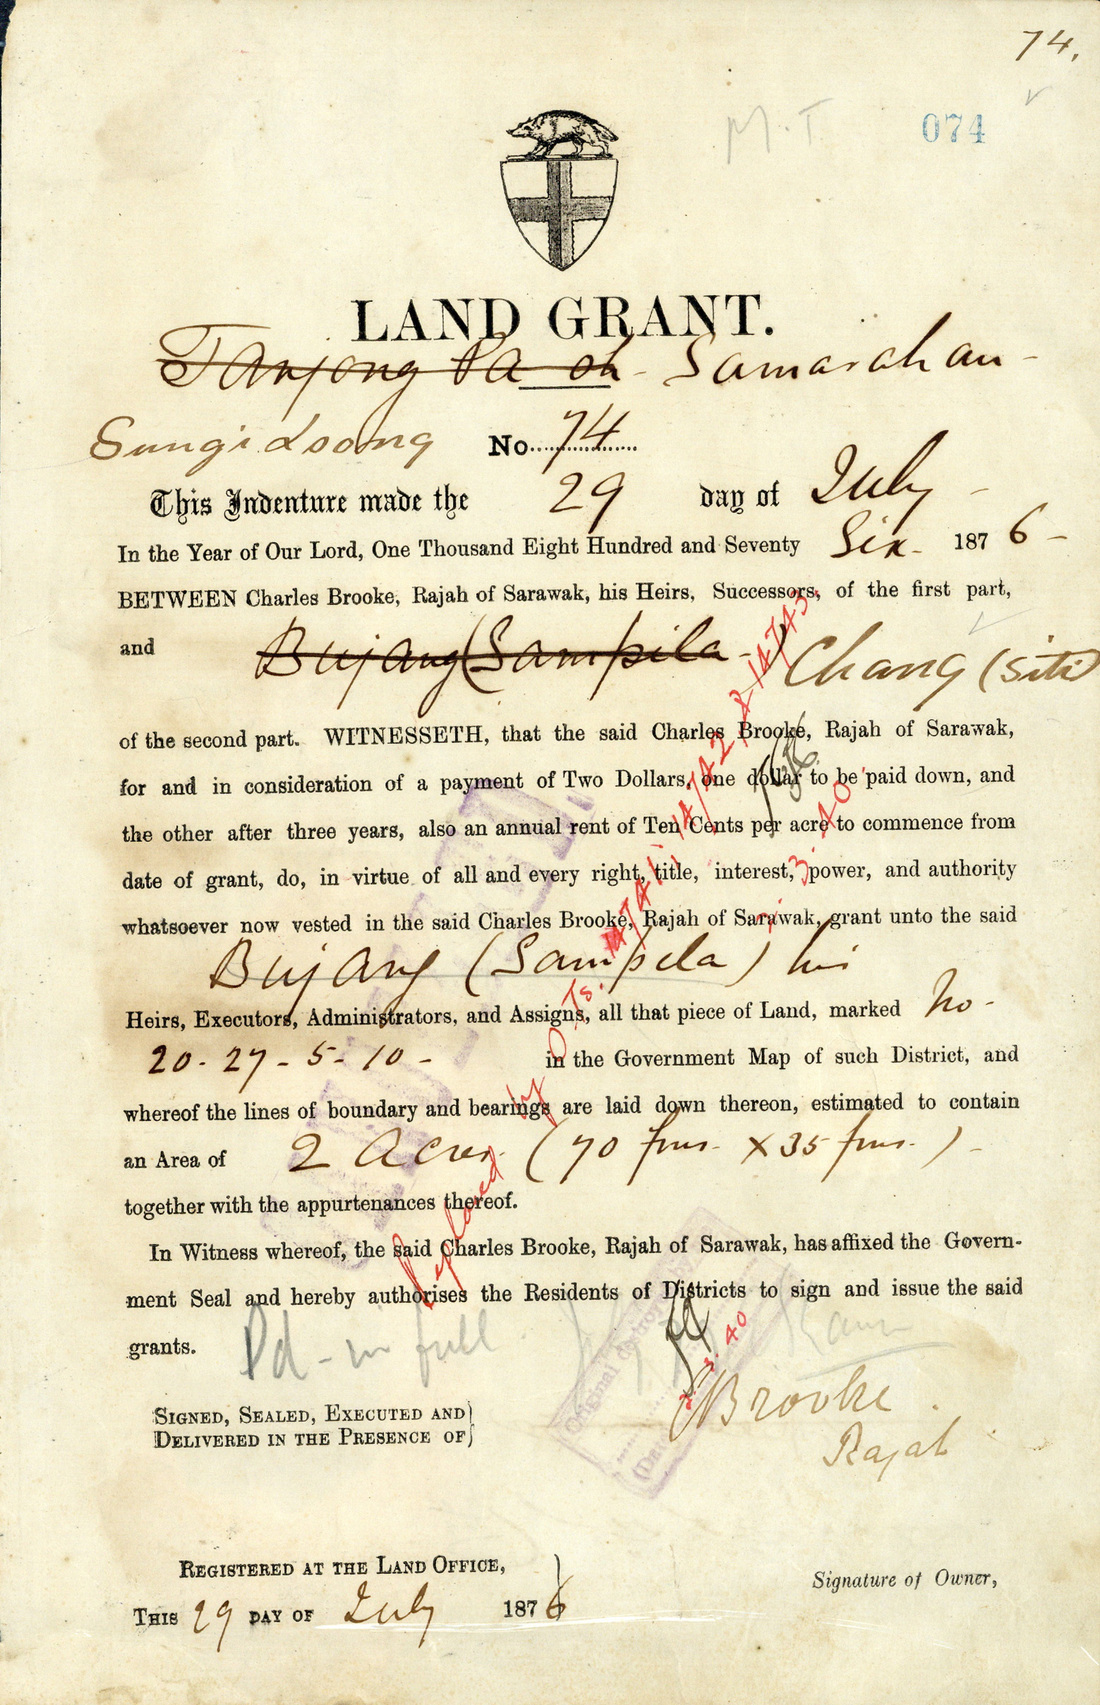 74.
M. T
074
LAND GRANT.
Tanjong Samarahan -
Sungi dsong No. 74
This Indenture made the 29 day of July -
In the Year of Our Lord, One Thousand Eight Hundred and Seventy Six - 1876 -
BETWEEN Charles Brooke, Rajah of Sarawak, his Heirs, Successors, of the first part,
and Bujang (Sampila - ) Chang (Siti)
of the second part. WITNESSETH, that the said Charles Brooke, Rajah of Sarawak,
for and in consideration of a payment of Two Dollars, one dollar to be paid down, and
the other after three years, also an annual rent of Ten Cents per acre to commence from
date of grant, do, in virtue of all and every right, title, interest, power, and authority
whatsoever now vested in the said Charles Brooke, Rajah of Sarawak, grant unto the said
Bujang (Sampila) his
Heirs, Executors, Administrators, and Assigns, all that piece of Land, marked No -
20 - 27 - 5 - 10 - in the Government Map of such District, and
whereof the lines of boundary and bearings are laid down thereon, estimated to contain
an Area of 2 Acres - (70 fms. X 35 fms. ) -
together with the appurtenances thereof.
In Witness whereof, the said Charles Brooke, Rajah of Sarawak, has affixed the Govern-
ment Seal and hereby authorises the Residents of Districts to sign and issue the said
grants. Pd - in full
Replaced by
3. 40
CBrooke
Rajah
SIGNED, SEALED, EXECUTED AND
DELIVERED IN THE PRESENCE OF
REGISTERED AT THE LAND OFFICE,
THIS 29 DAY OF July 1876
Signature of Owner,